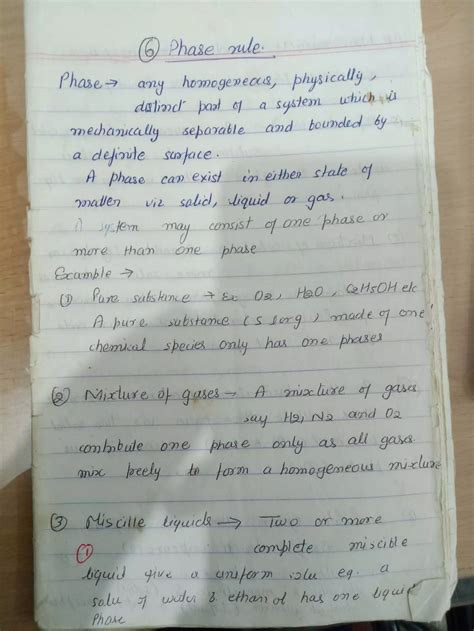 ⑥ Phase rule.
Phase → any homogeneous, physically,
distinct part of a system which is
mechanically separable and bounded by
a definite surface.
A phase can exist in either state of
matter viz solid, liquid or gas.
system may consist of one phase or
more than one phase
Example →
(1) Pure substance → Ex O2, H2O, C2H5OH etc
A pure substance (s l or g) made of one
chemical species only has one phases
② Mixture of gases – A mixture of gases
say H2, N2 and O2
contribute one phase only as all gases
mix freely to form a homogeneous mixture
③ Miscille liquids → Two or more
① complete miscible
liquid give a uniform solu eg. a
solu of water & ethanol has one liquid
Phase